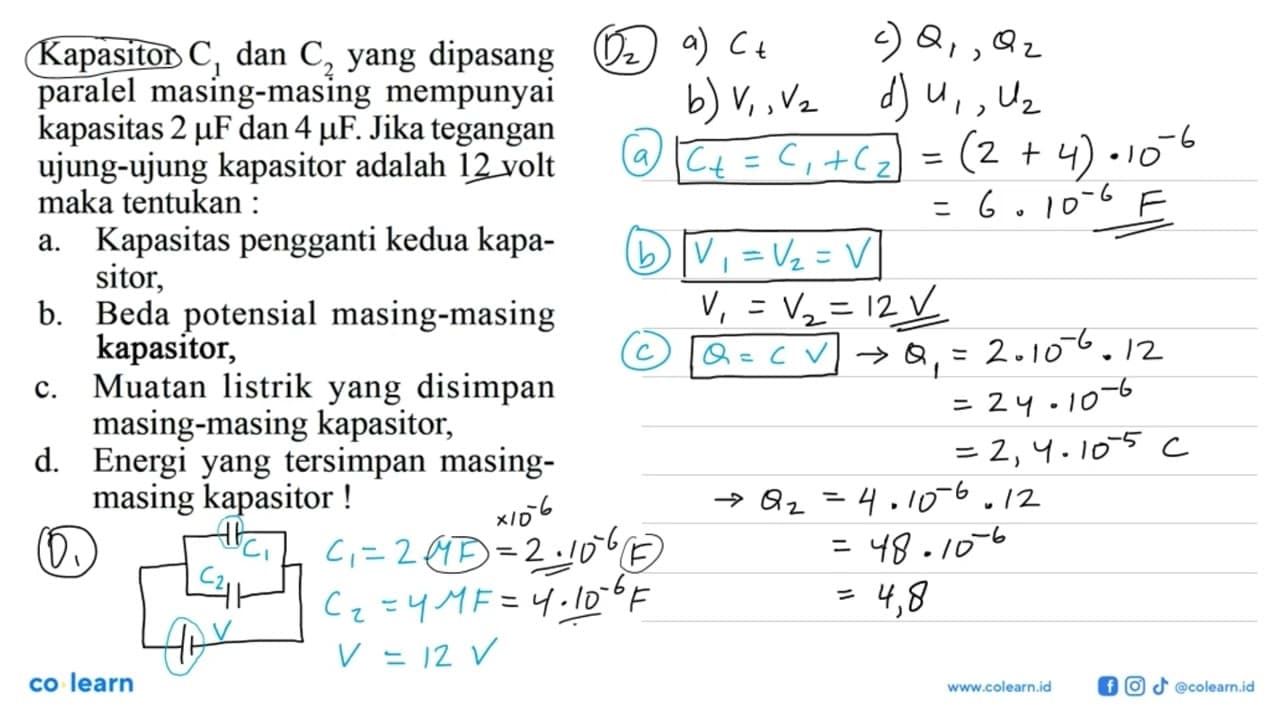 Kapasitor C₁ dan C₂ yang dipasang
paralel masing-masing mempunyai
kapasitas 2 μF dan 4 μF. Jika tegangan
ujung-ujung kapasitor adalah 12 volt
maka tentukan :
a. Kapasitas pengganti kedua kapa-
sitor,
b. Beda potensial masing-masing
kapasitor,
c. Muatan listrik yang disimpan
masing-masing kapasitor,
d. Energi yang tersimpan masing-
masing kapasitor !
D₁
C₁
C₂
V
×10⁻⁶
C₁ = 2 μF = 2 . 10⁻⁶ F
C₂ = 4 μF = 4 . 10⁻⁶ F
V = 12 V
D₂ a) Ct c) Q₁, Q₂
b) V₁, V₂ d) U₁, U₂
a Ct = C₁ + C₂ = (2 + 4) . 10⁻⁶
= 6 . 10⁻⁶ F
b V₁ = V₂ = V
V₁ = V₂ = 12 V
c Q = C V → Q₁ = 2 . 10⁻⁶ . 12
= 24 . 10⁻⁶
= 2,4 . 10⁻⁵ C
→ Q₂ = 4 . 10⁻⁶ . 12
= 48 . 10⁻⁶
= 4,8
co learn
www.colearn.id @colearn.id